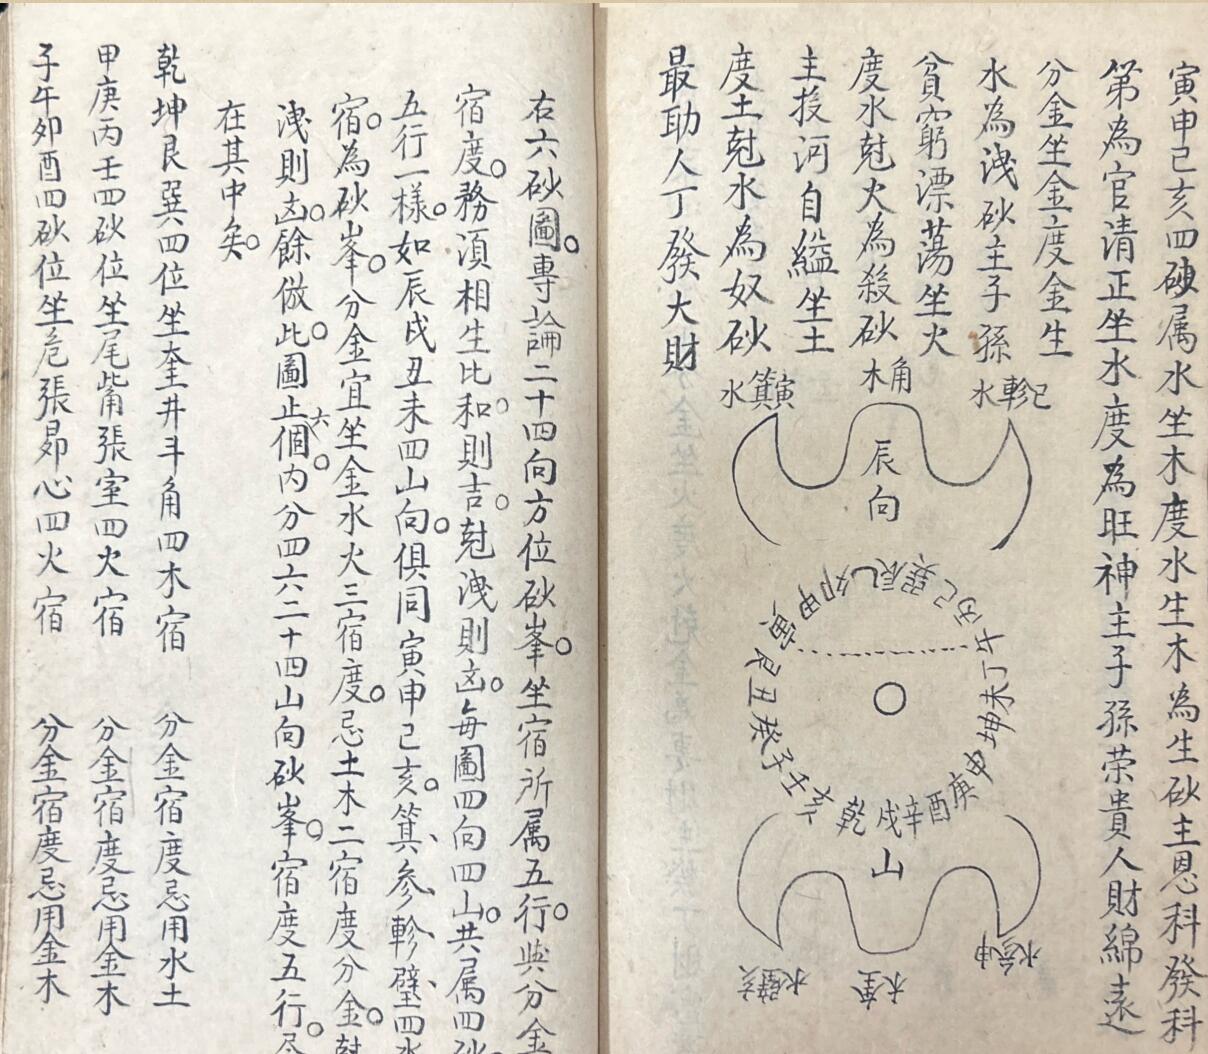 寅申巳亥四砂属水坐木度水生木為生砂主恩科發科
第為官清正坐水度為旺神主子孫荣貴人財綿遠
分金坐金度金生
水為洩砂主子孫
貧窮漂蕩坐火
度水尅火為殺砂
主投河自縊坐土
度土尅水為奴砂
最助人丁發大財
水軫巳
木角
水箕寅
辰向
巽辰乙卯甲寅艮丑癸子壬亥乾戌辛酉庚申坤未丁午丙巳
山
水壁亥
木奎
水參申
右六砂圖專論二十四向方位砂峯坐宿所属五行與分金
宿度務須相生比和則吉尅洩則凶每圖四向四山共属四砂
五行一樣如辰戌丑未四山向俱同寅申巳亥箕参軫壁四水
宿為砂峯分金宜坐金水火三宿度忌土木二宿度分金尅
洩則凶餘倣此圖止六個内分四六二十四山向砂峯宿度五行尽
在其中矣
乾坤艮巽四位坐奎井斗角四木宿 分金宿度忌用水土
甲庚丙壬四砂位坐尾觜張室四火宿 分金宿度忌用金木
子午卯酉四砂位坐危張昴心四火宿 分金宿度忌用金木